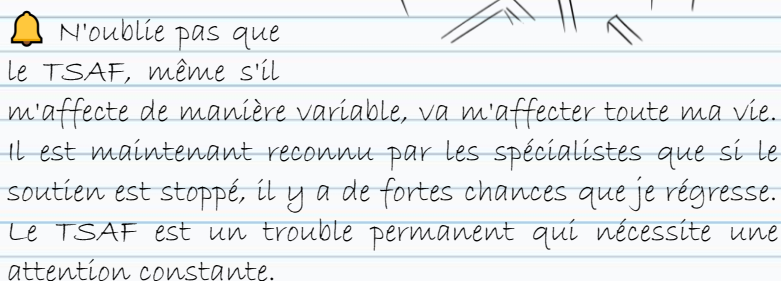 🔔 N'oublie pas que
le TSAF, même s'il
m'affecte de manière variable, va m'affecter toute ma vie.
Il est maintenant reconnu par les spécialistes que si le
soutien est stoppé, il y a de fortes chances que je régresse.
Le TSAF est un trouble permanent qui nécessite une
attention constante.